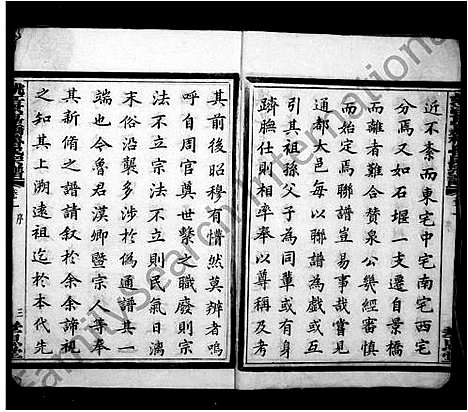 近不紊而東宅中宅南宅西宅
分焉又如石堰一支遷自景橋
而離者難合贊泉公幾經審慎
而始定焉聯譜豈易事哉嘗見
通都大邑每以聯譜為戲或互
引其祖孫父子為同輩或有以
躋膴仕則相率奉以尊稱及考
其前後昭穆有懵然莫辨者嗚
呼自周官奠世繫之職廢則宗
法不立宗法不立則民氣日漓
末俗沿襲多涉於偽通譜其一
端也令魯君漢卿暨宗人等奉
其新脩之譜請叙於余余諦視
之知其上溯遠祖迄於本代先
序
三
FamilySearch International